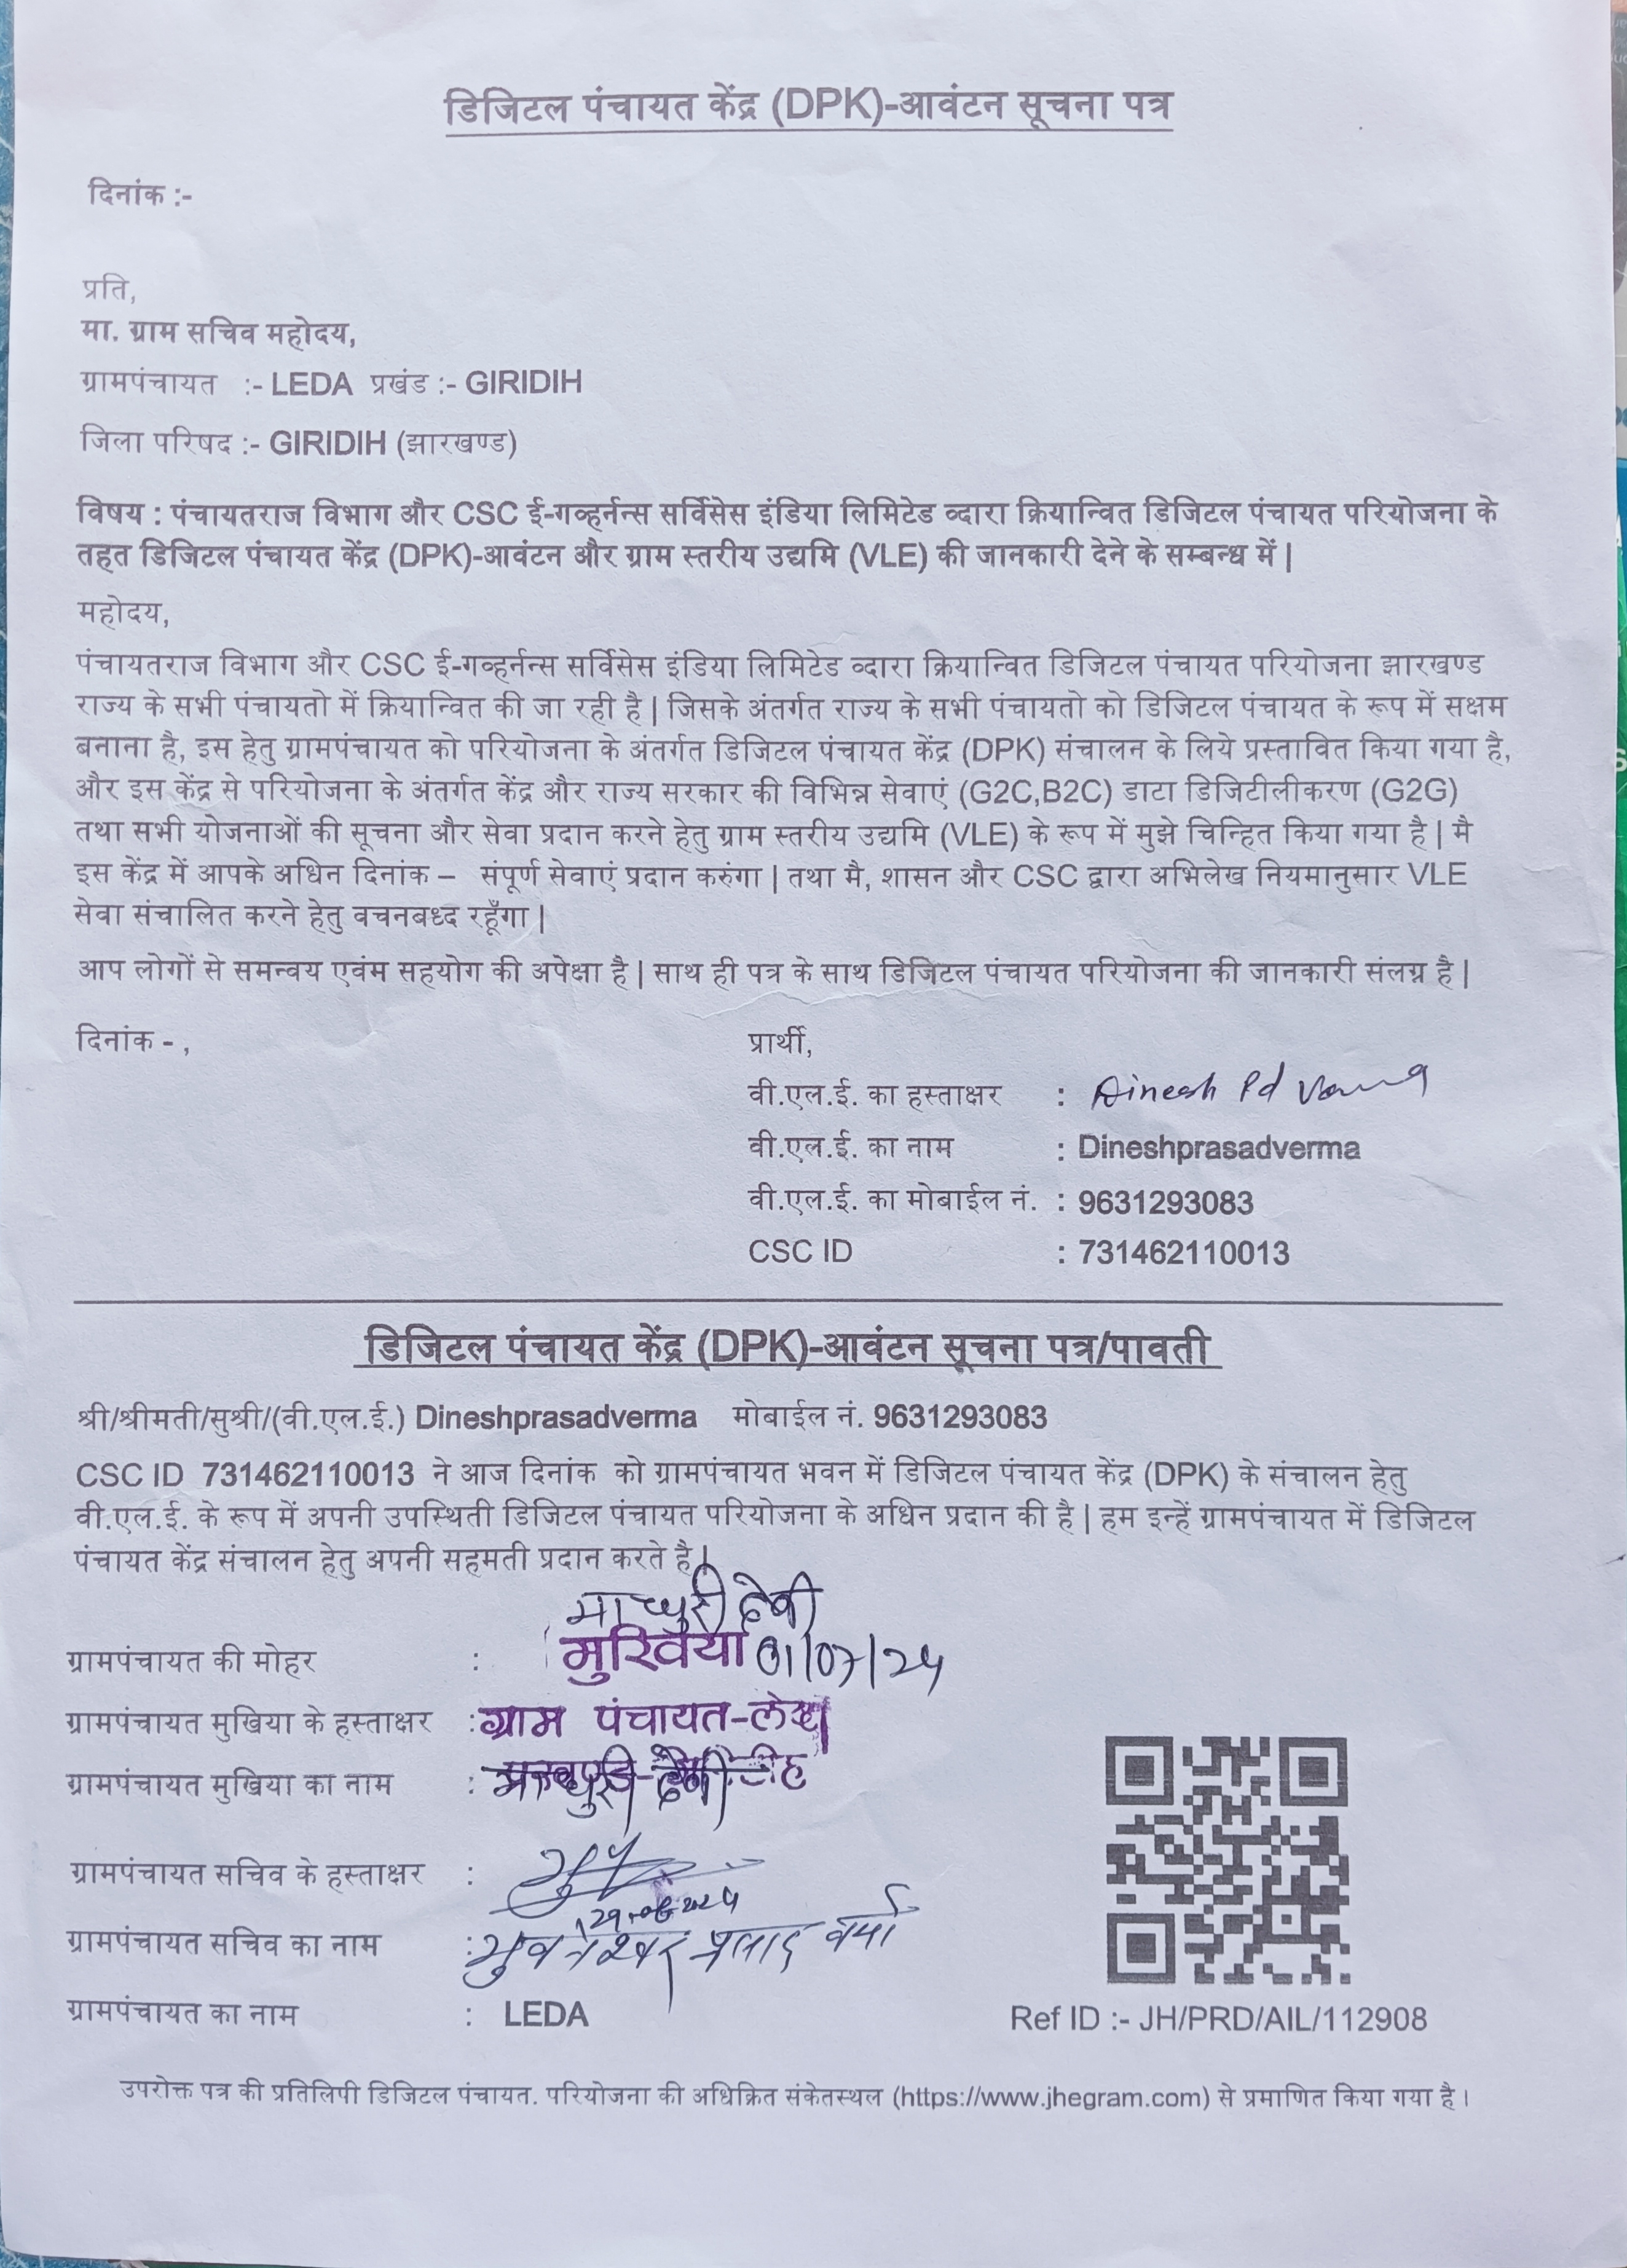 डिजिटल पंचायत केंद्र (DPK)-आवंटन सूचना पत्र
दिनांक :-
प्रति,
मा. ग्राम सचिव महोदय,
ग्रामपंचायत :- LEDA प्रखंड :- GIRIDIH
जिला परिषद :- GIRIDIH (झारखण्ड)
विषय : पंचायतराज विभाग और CSC ई-गव्हर्नन्स सर्विसेस इंडिया लिमिटेड व्दारा क्रियान्वित डिजिटल पंचायत परियोजना के
तहत डिजिटल पंचायत केंद्र (DPK)-आवंटन और ग्राम स्तरीय उद्यमि (VLE) की जानकारी देने के सम्बन्ध में |
महोदय,
पंचायतराज विभाग और CSC ई-गव्हर्नन्स सर्विसेस इंडिया लिमिटेड व्दारा क्रियान्वित डिजिटल पंचायत परियोजना झारखण्ड
राज्य के सभी पंचायतो में क्रियान्वित की जा रही है | जिसके अंतर्गत राज्य के सभी पंचायतो को डिजिटल पंचायत के रूप में सक्षम
बनाना है, इस हेतु ग्रामपंचायत को परियोजना के अंतर्गत डिजिटल पंचायत केंद्र (DPK) संचालन के लिये प्रस्तावित किया गया है,
और इस केंद्र से परियोजना के अंतर्गत केंद्र और राज्य सरकार की विभिन्न सेवाएं (G2C,B2C) डाटा डिजिटीलीकरण (G2G)
तथा सभी योजनाओं की सूचना और सेवा प्रदान करने हेतु ग्राम स्तरीय उद्यमि (VLE) के रूप में मुझे चिन्हित किया गया है | मै
इस केंद्र में आपके अधिन दिनांक – संपूर्ण सेवाएं प्रदान करुंगा | तथा मै, शासन और CSC द्वारा अभिलेख नियमानुसार VLE
सेवा संचालित करने हेतु वचनबध्द रहूँगा |
आप लोगों से समन्वय एवंम सहयोग की अपेक्षा है | साथ ही पत्र के साथ डिजिटल पंचायत परियोजना की जानकारी संलग्न है |
दिनांक - ,
प्रार्थी,
वी.एल.ई. का हस्ताक्षर : Dinesh Pd Verma
वी.एल.ई. का नाम : Dineshprasadverma
वी.एल.ई. का मोबाईल नं. : 9631293083
CSC ID : 731462110013
डिजिटल पंचायत केंद्र (DPK)-आवंटन सूचना पत्र/पावती
श्री/श्रीमती/सुश्री/(वी.एल.ई.) Dineshprasadverma मोबाईल नं. 9631293083
CSC ID 731462110013 ने आज दिनांक को ग्रामपंचायत भवन में डिजिटल पंचायत केंद्र (DPK) के संचालन हेतु
वी.एल.ई. के रूप में अपनी उपस्थिती डिजिटल पंचायत परियोजना के अधिन प्रदान की है | हम इन्हें ग्रामपंचायत में डिजिटल
पंचायत केंद्र संचालन हेतु अपनी सहमती प्रदान करते है |
माधुरी देवी
ग्रामपंचायत की मोहर : मुखिया 01/07/24
ग्रामपंचायत मुखिया के हस्ताक्षर : ग्राम पंचायत-लेदा
ग्रामपंचायत मुखिया का नाम : माधुरी देवी
ग्रामपंचायत सचिव के हस्ताक्षर :
ग्रामपंचायत सचिव का नाम : भुवनेश्वर प्रसाद वर्मा
ग्रामपंचायत का नाम : LEDA
Ref ID :- JH/PRD/AIL/112908
उपरोक्त पत्र की प्रतिलिपी डिजिटल पंचायत. परियोजना की अधिक्रित संकेतस्थल (https://www.jhegram.com) से प्रमाणित किया गया है।